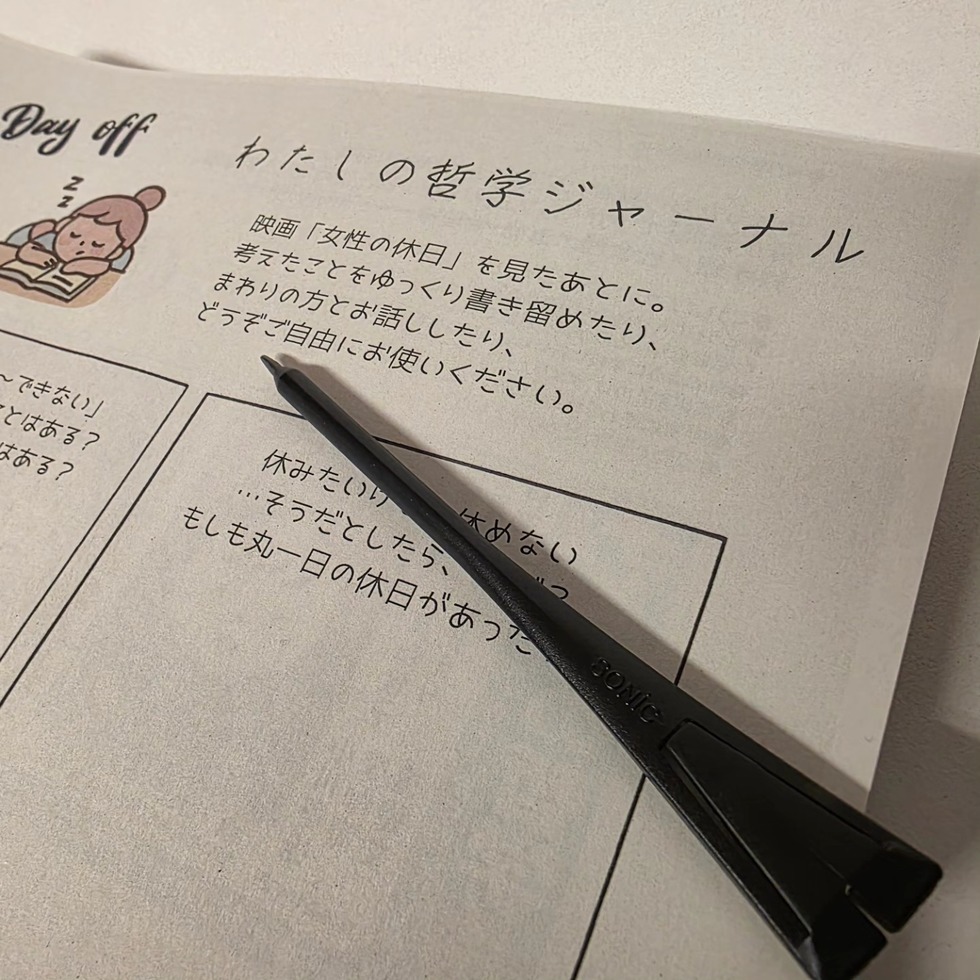 Day off
z
z
わたしの哲学ジャーナル
映画「女性の休日」を見たあとに。
考えたことをゆっくり書き留めたり、
まわりの方とお話ししたり、
どうぞご自由にお使いください。
～できない」
とはある？
はある？
休みたいけ 休めない
…そうだとしたら、
もしも丸一日の休日があった
SONiC